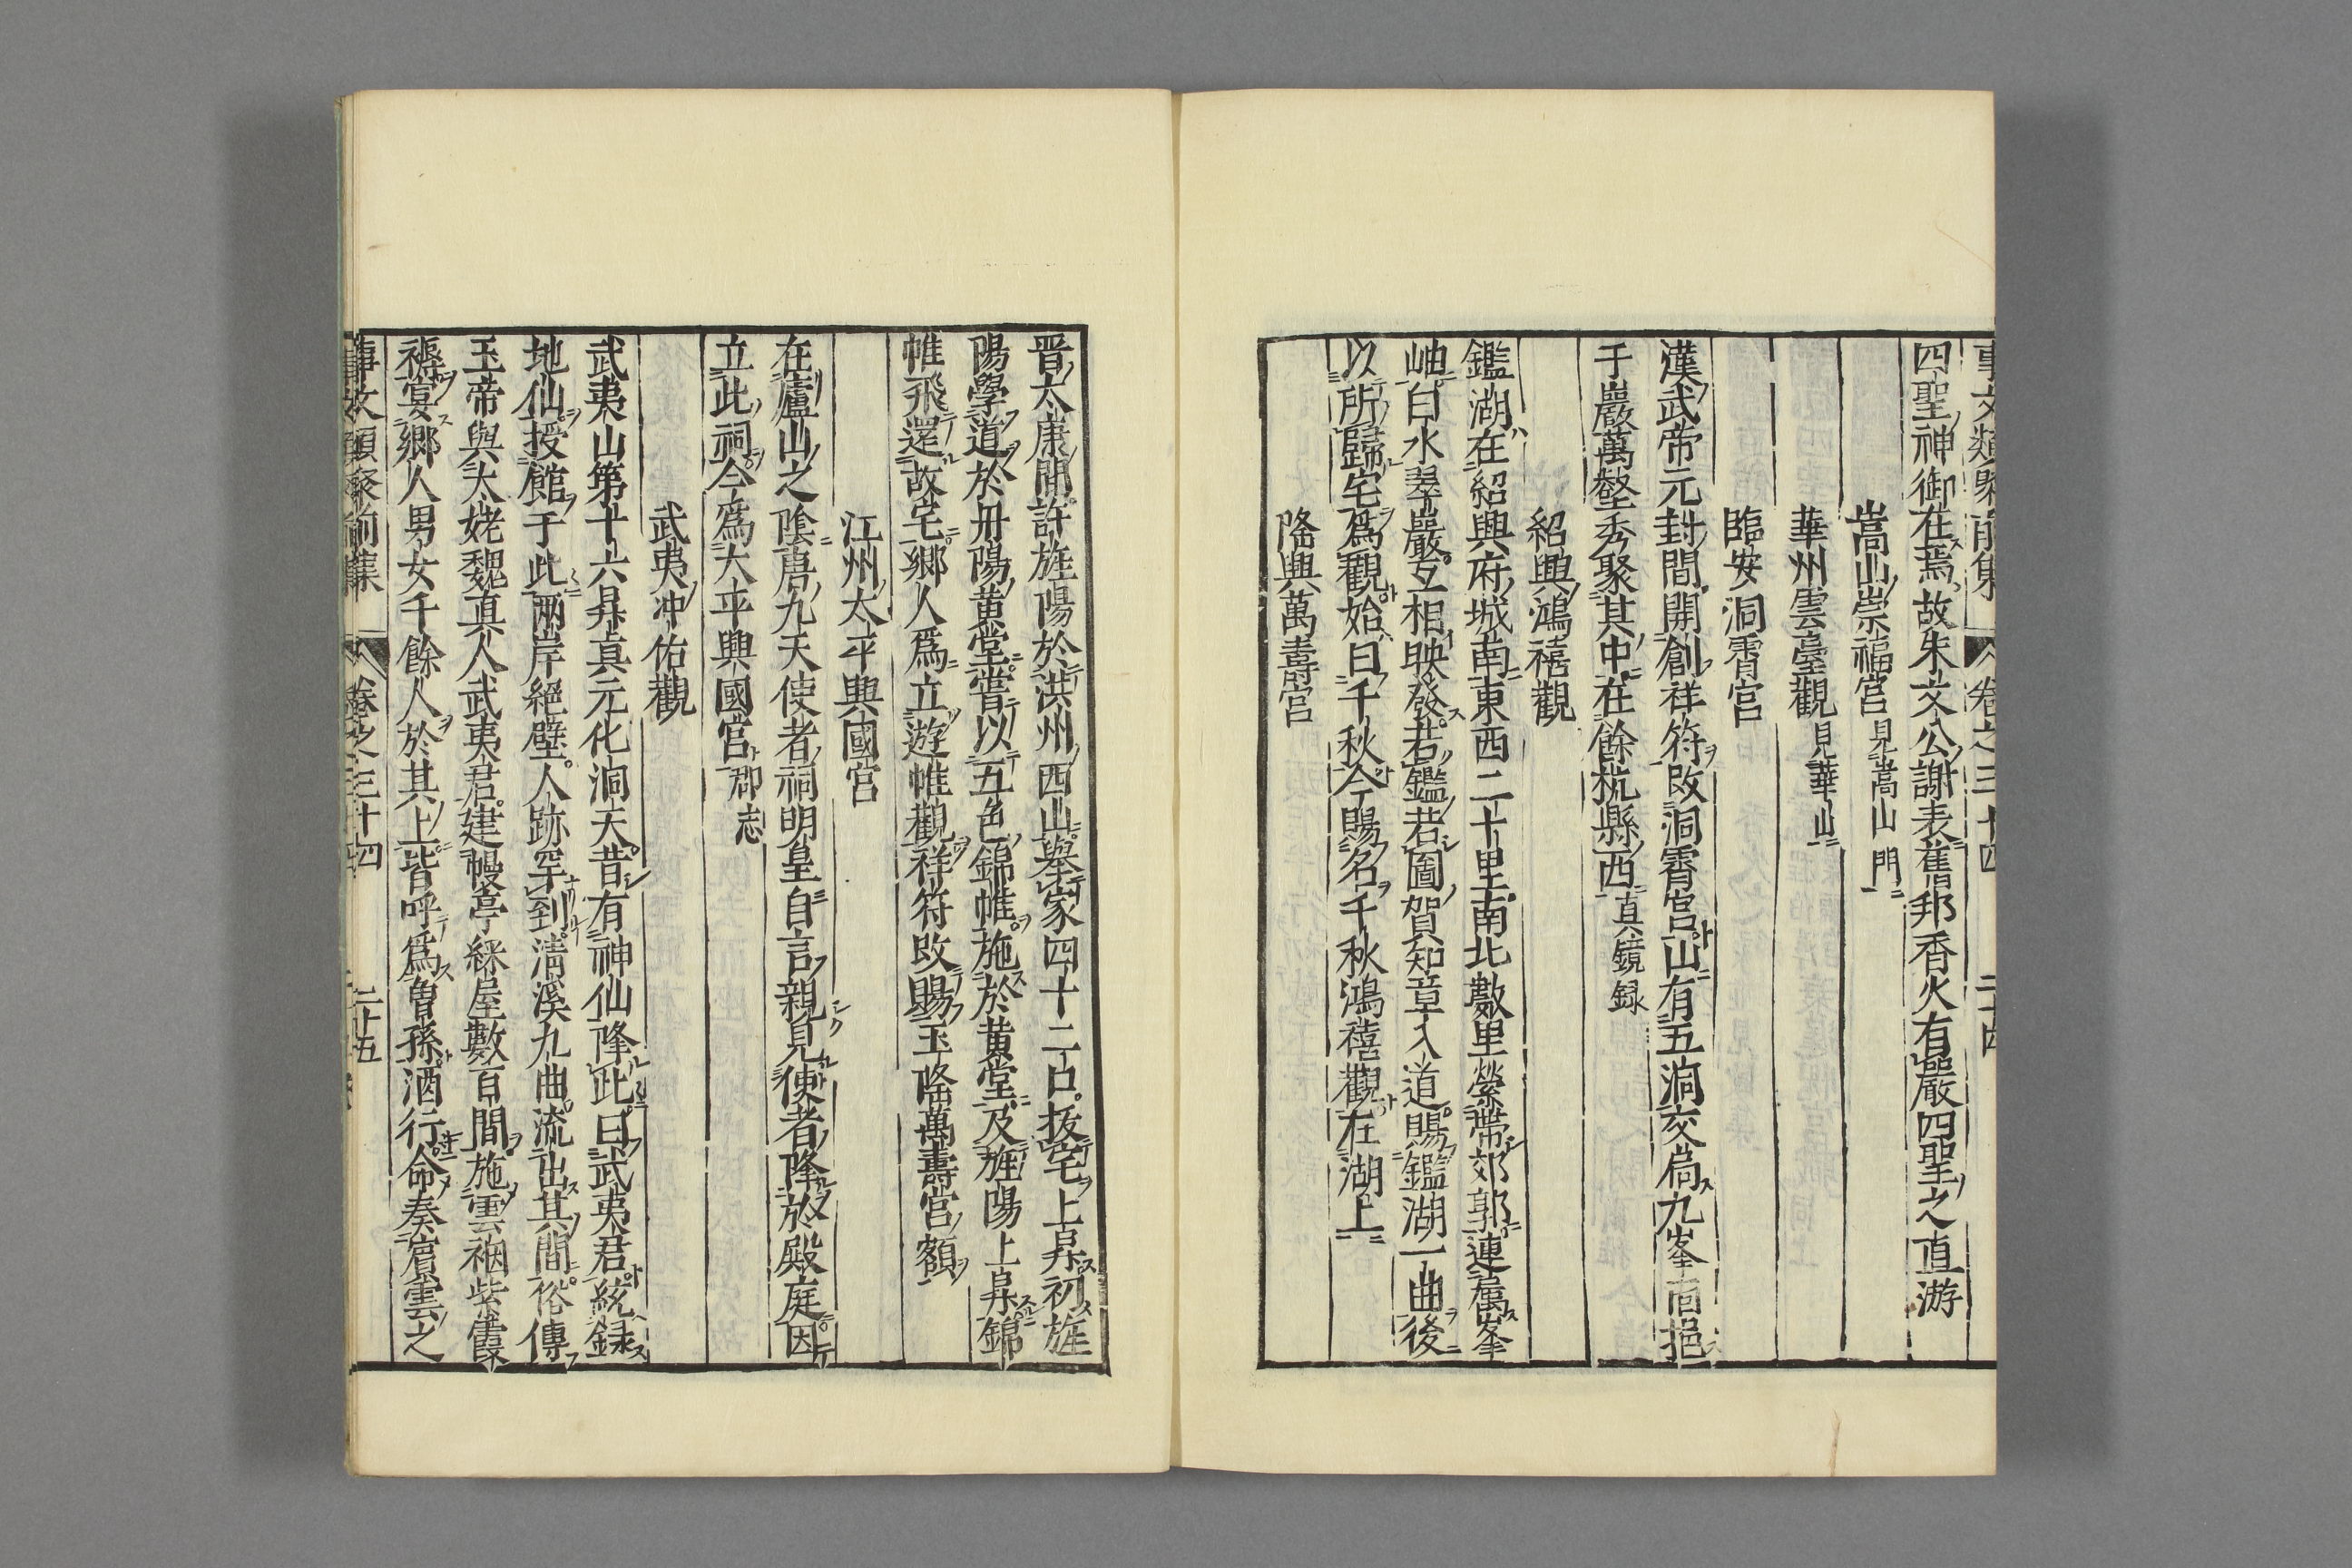 事文類聚前集 卷之三十四 二十四
四聖神御在焉故朱文公謝表舊邦香火有嚴四聖之直游
嵩山崇福宮見嵩山門
華州雲臺觀見華山
臨安洞霄宮
漢武帝元封間開創祥符改洞霄宮山有五洞交扃九峯
于巖萬壑秀聚其中在餘杭縣西真鏡録
紹興鴻禧觀
鑑湖在紹興府城南東西二十里南北數里縈帶郊郭連屬峯
岫白水翠巖互相映發若鑑若圖賀知章入道賜鑑湖一曲後
以所歸宅爲觀始曰千秋今賜名千秋鴻禧觀在湖上
隆興萬壽宮
晋太康間許旌陽於洪州西山擧家四十二口拔宅上昇初旌
陽學道於丹陽黄堂嘗以五色錦帷施於黄堂及旌陽上昇錦
帷飛還故宅郷人爲立遊帷觀祥符改賜玉隆萬壽宮額
江州太平興國宮
在廬山之陰唐九天使者祠明皇自言親見使者降於殿庭因
立此祠今爲太平興國宮郡志
武夷冲佑觀
武夷山第十六昇真元化洞天昔有神仙降此曰武夷君統録
地仙授館于此兩岸絕壁人跡罕到清溪九曲流出其間俗傳
玉帝與太姥魏真人武夷君建幔亭綵屋數百間施雲裀紫霞
褥宴郷人男女千餘人於其上皆呼爲曽孫酒行命奏賓雲之
事文類聚前集 卷之三十四 二十五